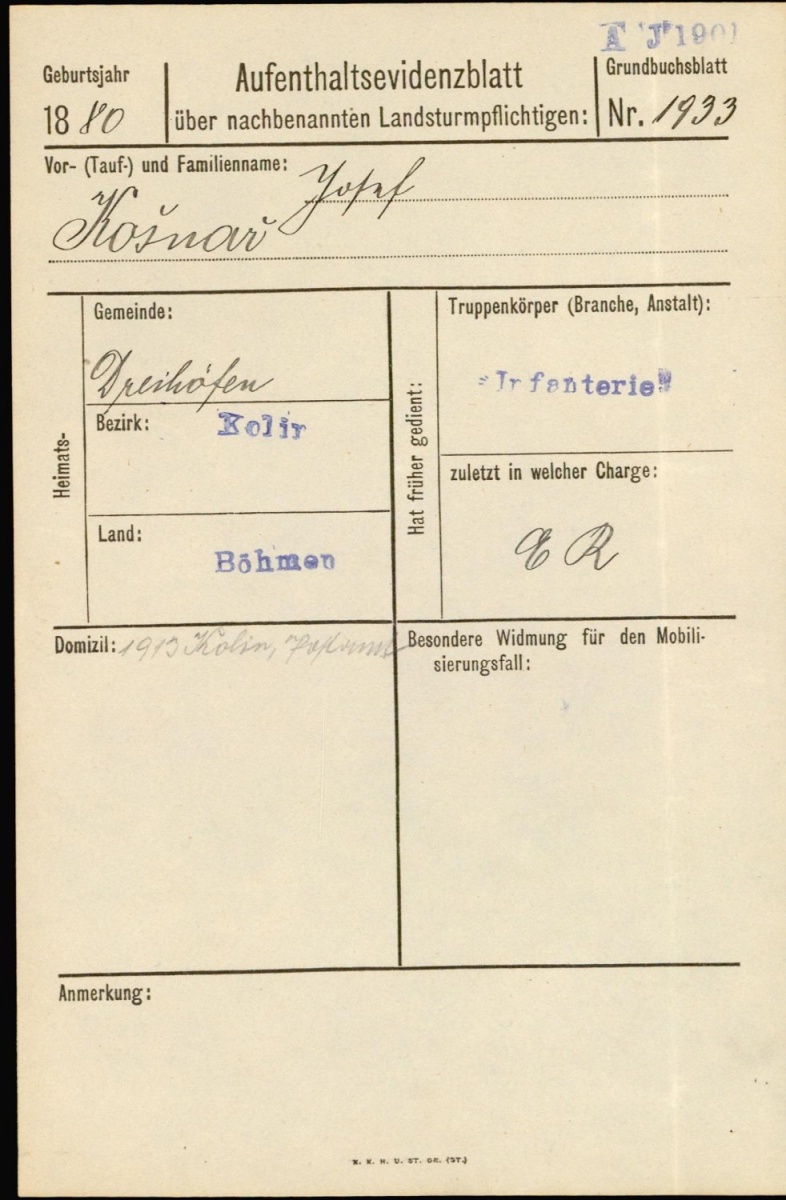 A J 1901
Geburtsjahr
1880
Aufenthaltsevidenzblatt
über nachbenannten Landsturmpflichtigen:
Grundbuchsblatt
Nr. 1933
Vor- (Tauf-) und Familienname: Josef
Košnař
Heimats-
Gemeinde:
Dreihöfen
Bezirk: Kolin
Land:
Böhmen
Hat früher gedient:
Truppenkörper (Branche, Anstalt):
"Infanterie"
zuletzt in welcher Charge:
E R
Domizil: 1913 Kolin, Postamt
Besondere Widmung für den Mobili-
sierungsfall:
Anmerkung:
K. K. H. U. ST. DR. (ST.)